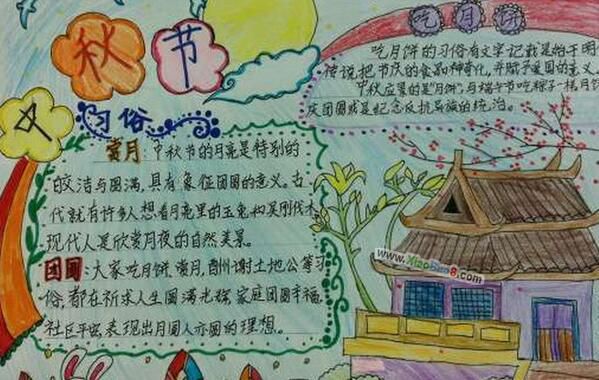 中
秋节
习俗
赏月:中秋节的月亮是特别的
皎洁与圆满,具有象征团圆的意义。古
代就有许多人想着月亮里的玉兔和吴刚伐木,
现代人是欣赏月夜的自然美景。
团圆:大家吃月饼、赏月,酬谢土地公等习
俗,都在祈求人生圆满光辉,家庭团圆幸福,
社区平安,表现出月圆人亦圆的理想。
吃月饼
吃月饼的习俗有文字记载是始于明
传说把节庆的食品神奇化,并赋予爱国的意义。
中秋应景的"月饼",与端午节吃粽子一样月饼
庆团圆或是纪念反抗异族的统治。
www.XiaoBao8.com